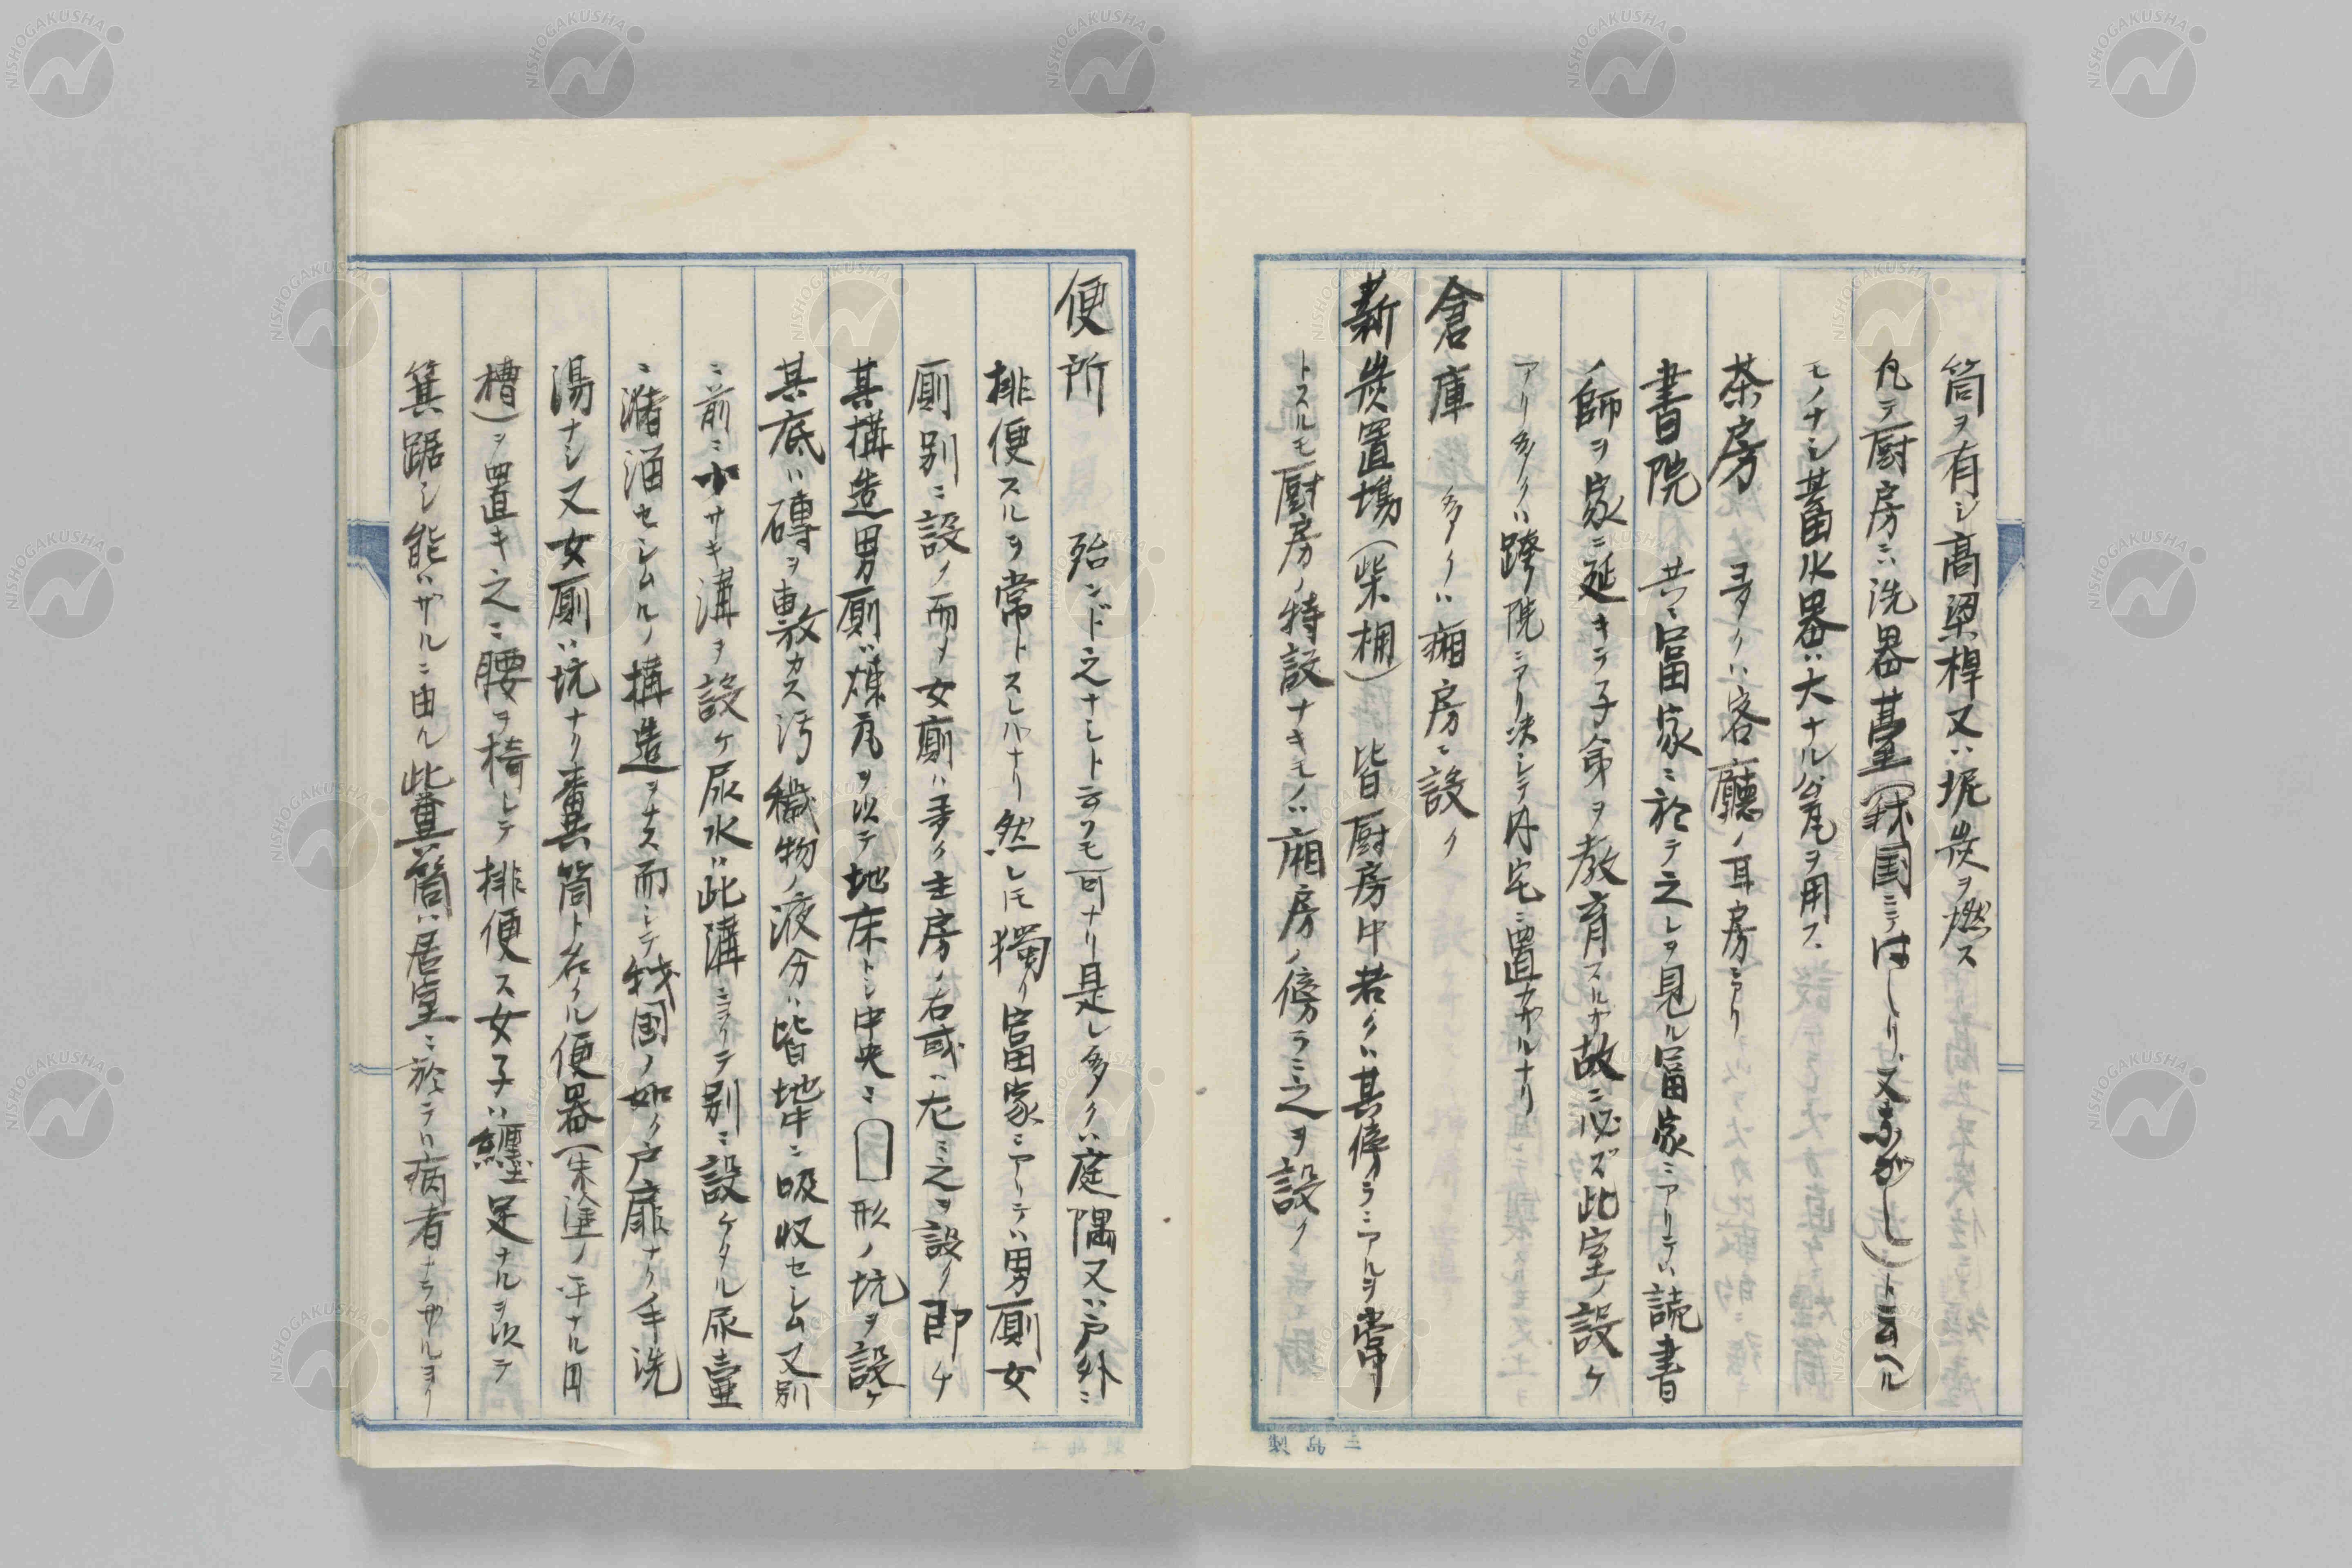 筒ヲ有シ高梁桿又ハ坭炭ヲ燃ス
凡テ厨房ニハ洗器臺(我国ニテはしり、又ながし)ト云ヘル
モノナシ蓄水器ハ大ナル瓮ヲ用ス
茶房 多クハ客廳ノ耳房ニアリ
書院 共ニ富家ニ於テ之レヲ見ル富家ニアリテハ読書
ノ師ヲ家ニ延キテ子命ヲ教育スルカ故ニ必ズ此室ノ設ケ
アリ多クハ跨院ニアリ决シテ内宅ニ置カザルナリ
倉庫 多クハ廂房ニ設ク
薪炭置場(柴棚) 皆厨房中若クハ其傍ラニアルヲ常
トスルモ厨房ノ特設ナキモノハ廂房ノ傍ラニ之ヲ設ク
便所 殆ンド之ナシト云フモ可ナリ是レ多クハ庭隅又ハ戸外ニ
排便スルヲ常トスレハナリ然レ𪜈獨リ富家ニアリテハ男厠女
厠別ニ設ク而メ女厠ハ多ク主房ノ右或ハ左ニ之ヲ設ク即チ
其構造男厠ハ煉瓦ヲ以テ地床トシ中央ニ 形ノ坑ヲ設ケ
其底ハ磚ヲ敷カス汚穢物ノ液分ハ皆地中ニ吸収セシム又別
ニ前ニ小サキ溝ヲ設ケ尿水ハ此溝ニヨリテ別ニ設ケタル尿壷
ニ瀦溜セシムルノ構造ヲナス而シテ我国ノ如ク戸扉ナク手洗
湯ナシ又女厠ハ坑ナク糞筒ト名クル便器(朱塗ノ平ナル円
槽)ヲ置キ之ニ腰ヲ椅シテ排便ス女子ハ纏足ナルヲ以テ
箕踞シ能ハザルニ由ル此糞筒ハ居室ニ於テハ病者ナラザルヨリ
三品製
NISHOGAKUSHA